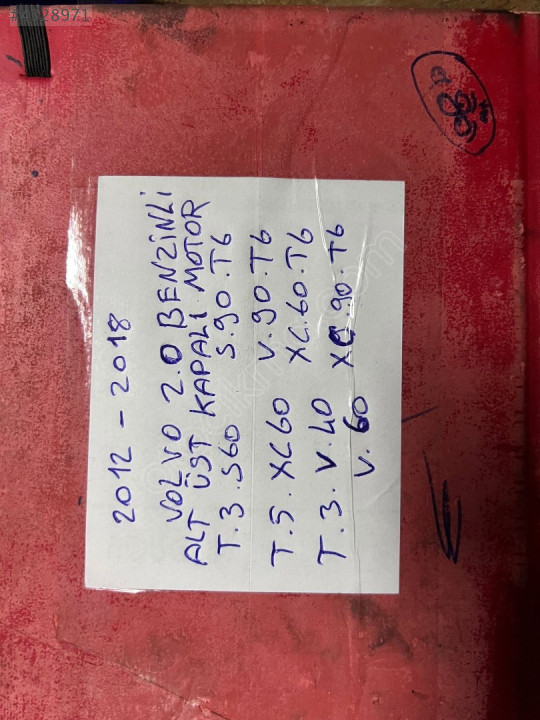 2012 - 2018
VOLVO 2.0 BENZİNLİ
ALT ÜST KAPALI MOTOR
T.3.S60 S.90.T6
T.5.XC60 V.90.T6
T.3.V.40 XC.60.T6
V.60 XC.90.T6